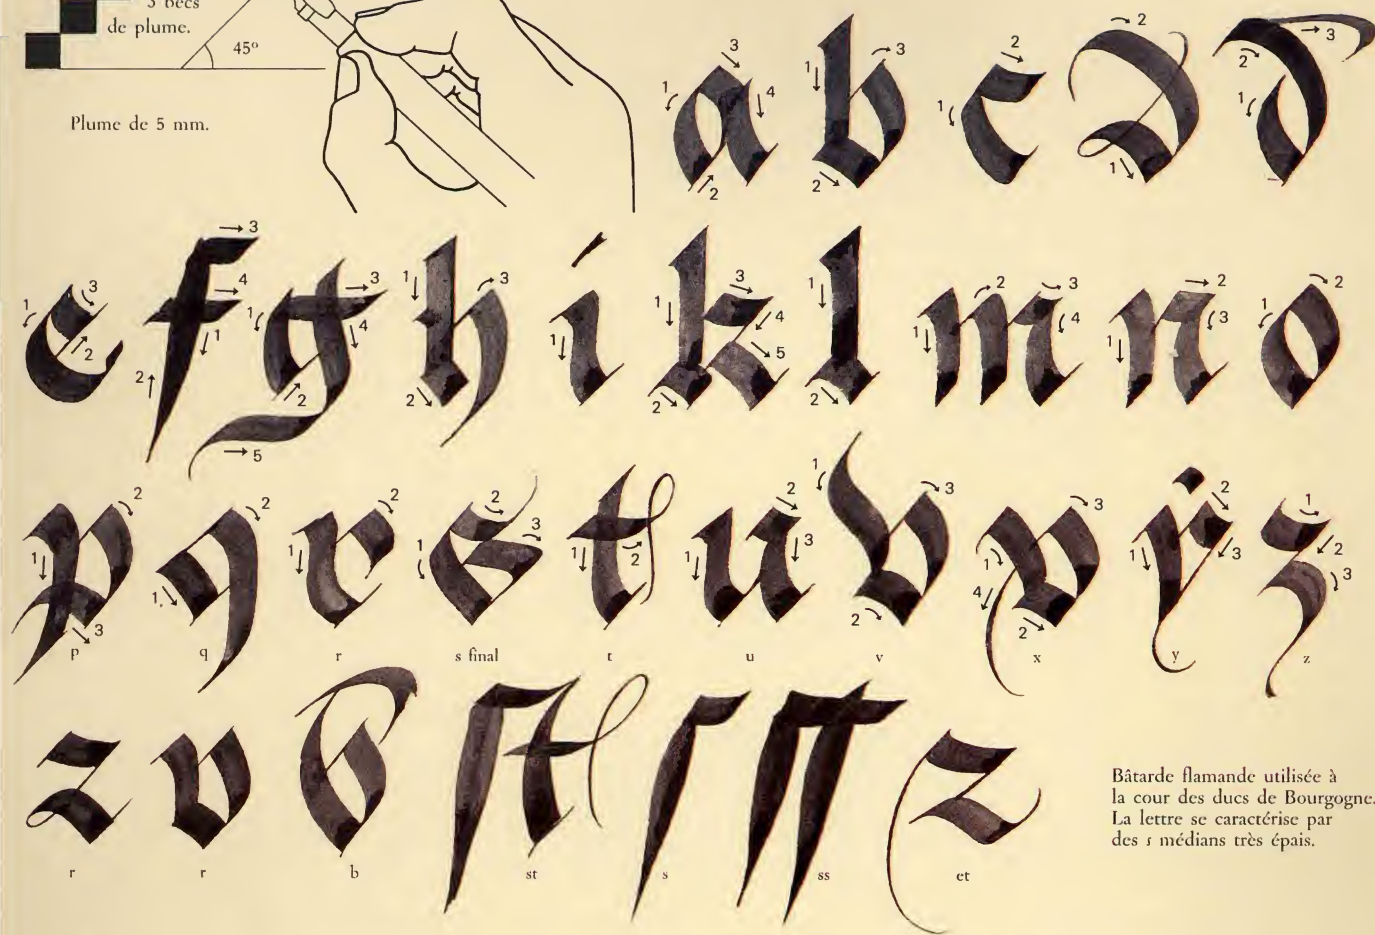 becs
de plume.
45°
Plume de 5 mm.
a b c d d
e f g h i k l m n o
p q r s t u v x y z
p q r s final t u v x y z
Bâtarde flamande utilisée à
la cour des ducs de Bourgogne.
La lettre se caractérise par
des s médians très épais.
r r b st s ss et